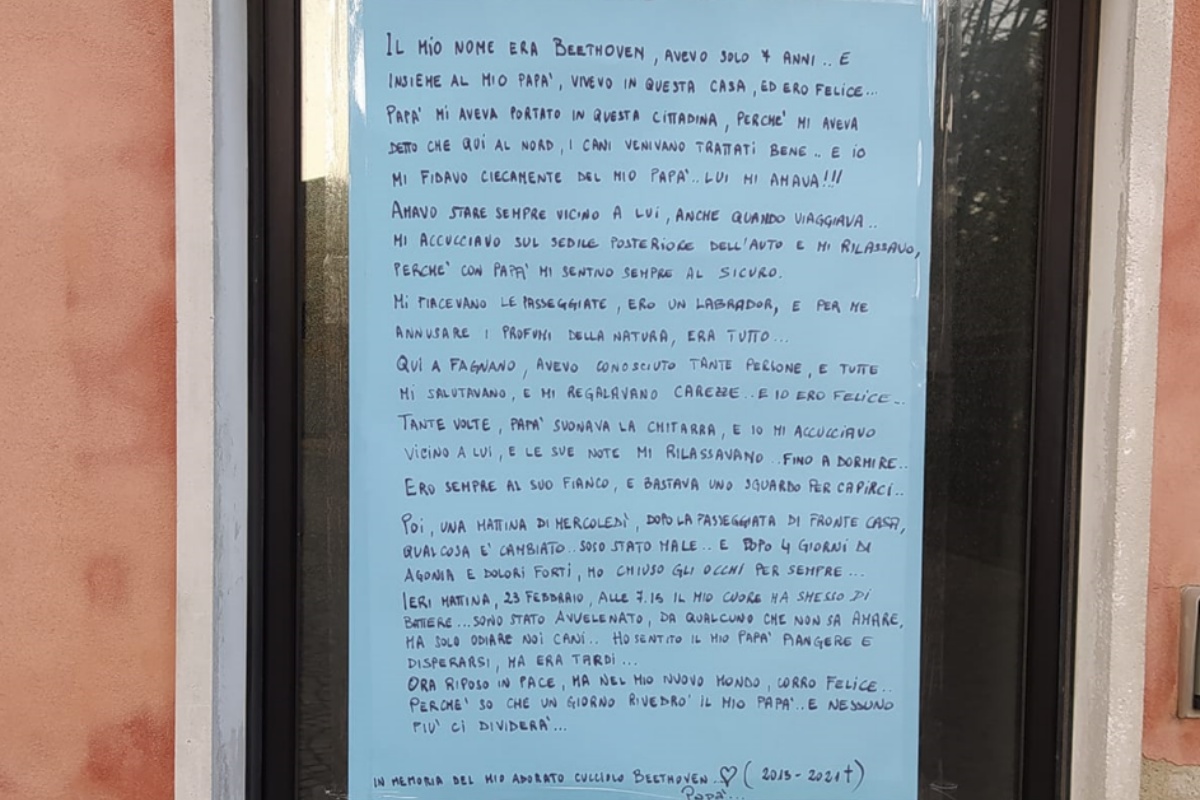 IL MIO NOME ERA BEETHOVEN, AVEVO SOLO 7 ANNI.. E
INSIEME AL MIO PAPA', VIVEVO IN QUESTA CASA, ED ERO FELICE...
PAPA' MI AVEVA PORTATO IN QUESTA CITTADINA, PERCHE' MI AVEVA
DETTO CHE QUI AL NORD, I CANI VENIVANO TRATTATI BENE.. E IO
MI FIDAVO CIECAMENTE DEL MIO PAPA'.. LUI MI AMAVA!!!
AMAVO STARE SEMPRE VICINO A LUI, ANCHE QUANDO VIAGGIAVA..
MI ACCUCCIAVO SUL SEDILE POSTERIORE DELL'AUTO E MI RILASSAVO,
PERCHE' CON PAPA' MI SENTIVO SEMPRE AL SICURO.
MI PIACEVANO LE PASSEGGIATE, ERO UN LABRADOR, E PER ME
ANNUSARE I PROFUMI DELLA NATURA, ERA TUTTO...
QUI A FAGNANO, AVEVO CONOSCIUTO TANTE PERSONE, E TUTTE
MI SALUTAVANO, E MI REGALAVANO CAREZZE.. E IO ERO FELICE..
TANTE VOLTE, PAPA' SUONAVA LA CHITARRA, E IO MI ACCUCCIAVO
VICINO A LUI, E LE SUE NOTE MI RILASSAVANO.. FINO A DORMIRE..
ERO SEMPRE AL SUO FIANCO, E BASTAVA UNO SGUARDO PER CAPIRCI..
POI, UNA MATTINA DI MERCOLEDÌ, DOPO LA PASSEGGIATA DI FRONTE CASA,
QUALCOSA E' CAMBIATO.. SOSO STATO MALE.. E DOPO 4 GIORNI DI
AGONIA E DOLORI FORTI, HO CHIUSO GLI OCCHI PER SEMPRE...
IERI MATTINA, 23 FEBBRAIO, ALLE 7.15 IL MIO CUORE HA SMESSO DI
BATTERE... SONO STATO AVVELENATO, DA QUALCUNO CHE NON SA AMARE,
MA SOLO ODIARE NOI CANI.. HO SENTITO IL MIO PAPA' PIANGERE E
DISPERARSI, MA ERA TARDI...
ORA RIPOSO IN PACE, MA NEL MIO NUOVO MONDO, CORRO FELICE..
PERCHE' SO CHE UN GIORNO RIVEDRO' IL MIO PAPA'.. E NESSUNO
PIU' CI DIVIDERA'...
IN MEMORIA DEL MIO ADORATO CUCCIOLO BEETHOVEN.. ♡ (2013-2021†)
PAPA'...